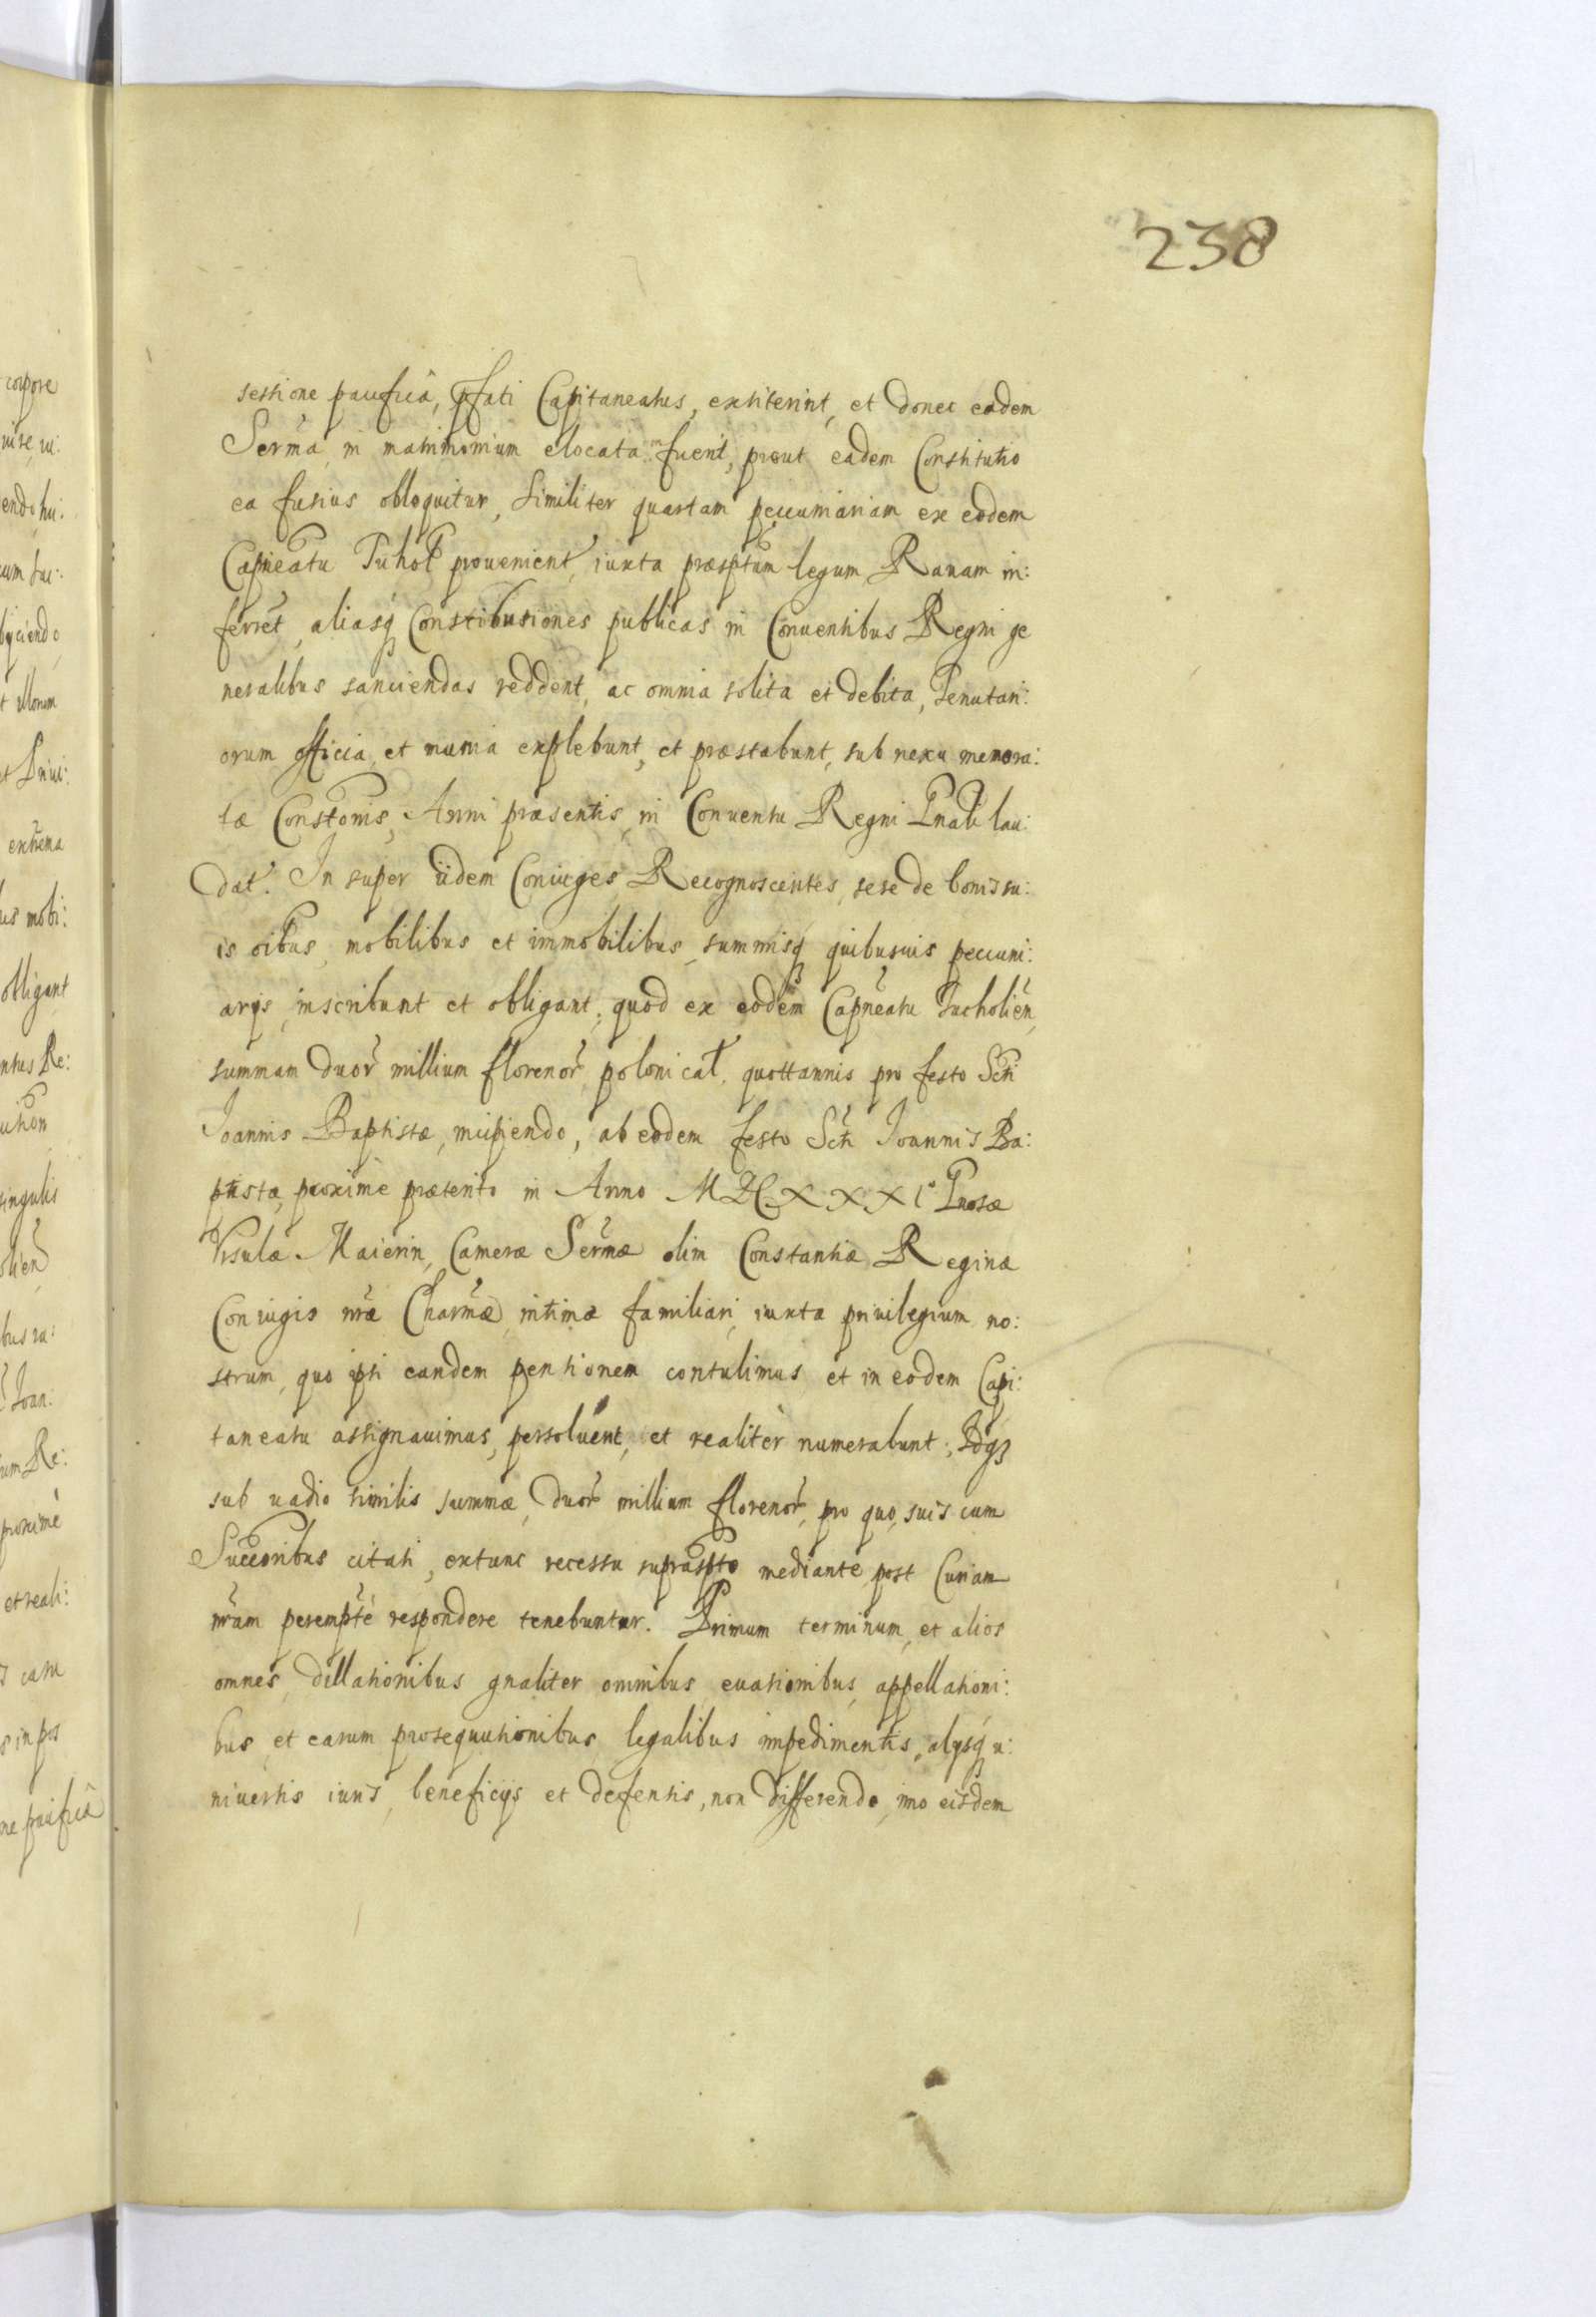 238
sessione pacifica, pfati Capitaneatus, extiterint, et donec eadem
Serma in matrimonium elocata fuerit, prout eadem Constitutio
ea fusius obloquitur, Similiter quartam pecuniariam ex eodem
Capneatu Tuhol provenient, iuxta præsptum legum Ravam in:
ferret, aliasq Constibutiones publicas in Conventibus Regni ge
neralibus sanciendas reddent, ac omnia solita et debita, Tenutari:
orum officia, et munia explebunt, et præstabunt, sub nexu memora:
tæ Constonis, Anni præsentis, in Conventu Regni Gnali lau:
dat. In super iidem Coniuges Recognoscentes, sese de bonis su:
is oibus, mobilibus et immobilibus, summisq quibusvis peccuni:
arijs, inscribunt et obligant, quod ex eodem Capneatu Tucholien,
summam duor millium florenor polonical, quottannis pro festo Scti
Joannis Baptistæ, incipiendo, ab eodem festo Scti Joannis Ba:
ptistæ, proximè præterito in Anno MDCXXXIº Gnosæ
Vrsulæ Maierin, Cameræ Sermæ olim Constantiæ Reginæ
Coniugis nræ Charmæ, intimæ familiari, iuxta privilegium no:
strum, quo ipsi eandem pensionem contulimus et in eodem Capi:
taneatu assignavimus, persoluent, et realitèr numerabunt; Idq3
sub vadio similis summæ, duor millium florenor, pro quo, suis cum
Succoribus citati, extunc recessu suprasPto mediante, post Curiam
nram peremptè respondere tenebuntur. Primum terminum, et alios
omnes, dillationibus gnaliter omnibus, evasionibus, appellationi:
bus, et earum prosequutionibus, legalibus impedimentis, alijsq u:
niversis iuris, beneficijs et defensis, non differendo, imo eisdem